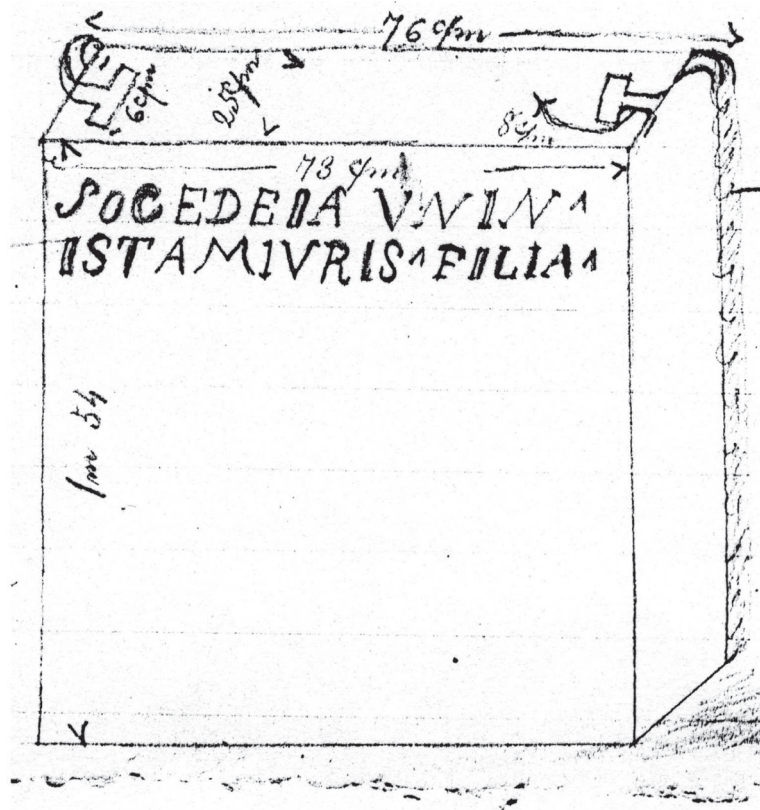 76 c/m
6 c/m
25 c/m
8 c/m
73 c/m
SOCEDEIA VNIN^
ISTAMIVRIS^FILIA^
1m 54